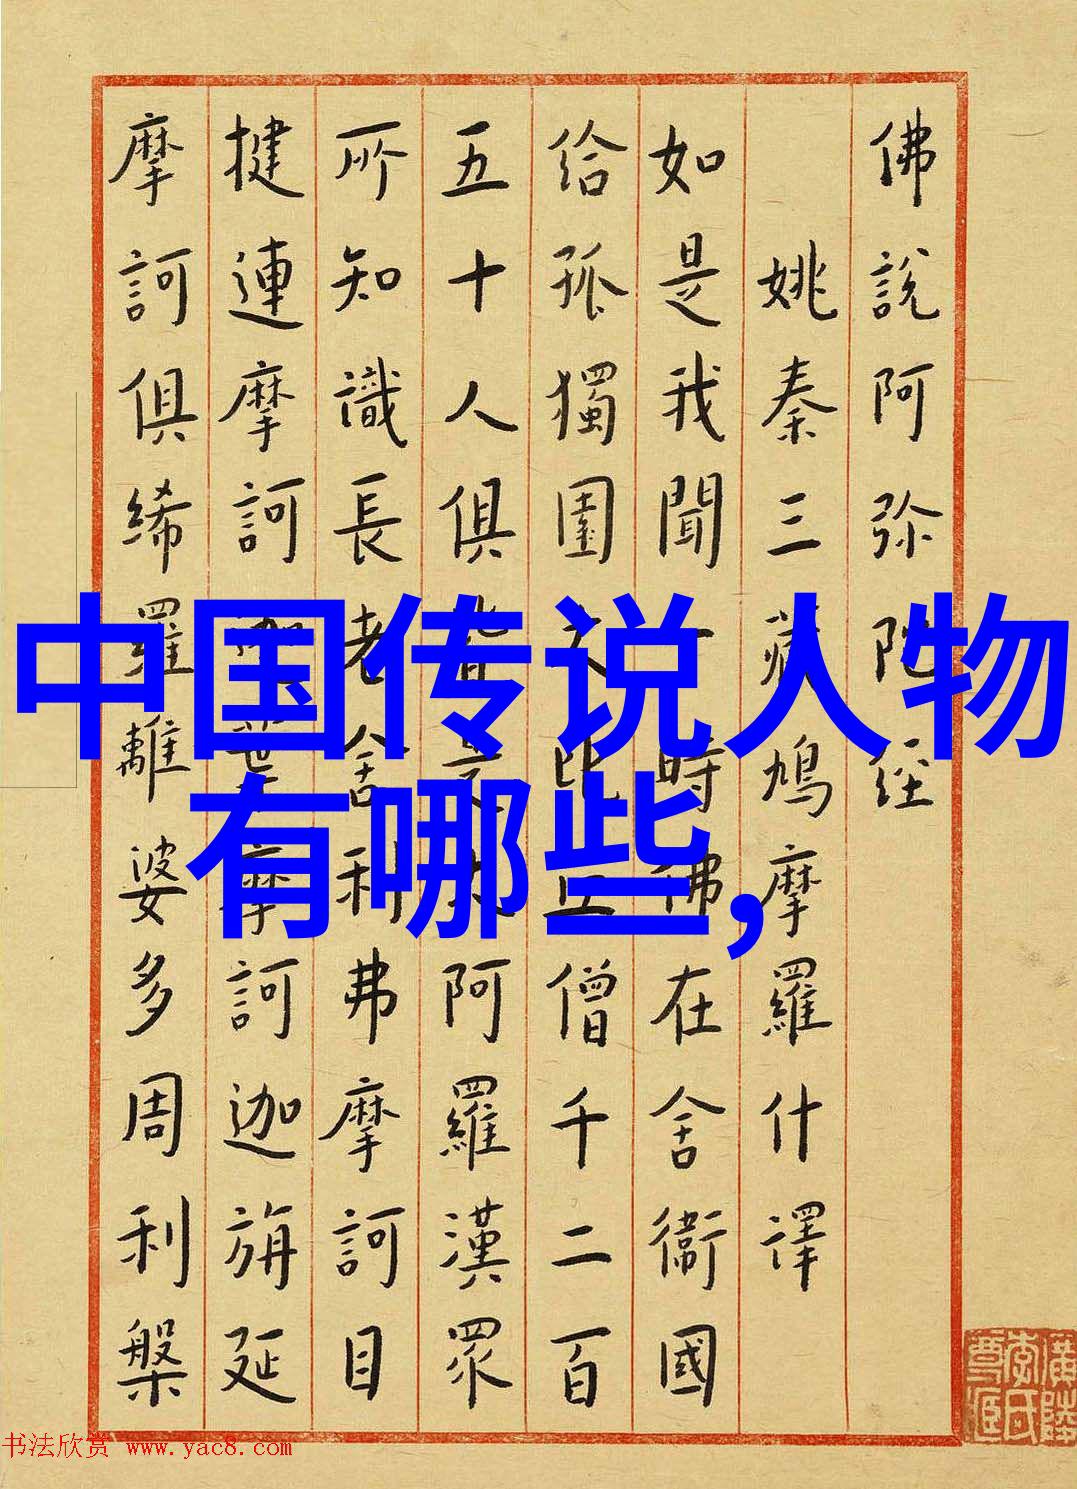 佛說阿弥陀經
姚秦三藏鳩摩羅什譯
如是我聞一時佛在舍衞國
給孤獨園大比丘僧千二百
五十人俱皆是大阿羅漢眾
所知識長老舍利弗摩訶目
揵連摩訶迦葉摩訶迦旃延
摩訶俱絺羅離婆多周利槃
中国传说人物
有哪些,
书法欣赏 www.yac8.com